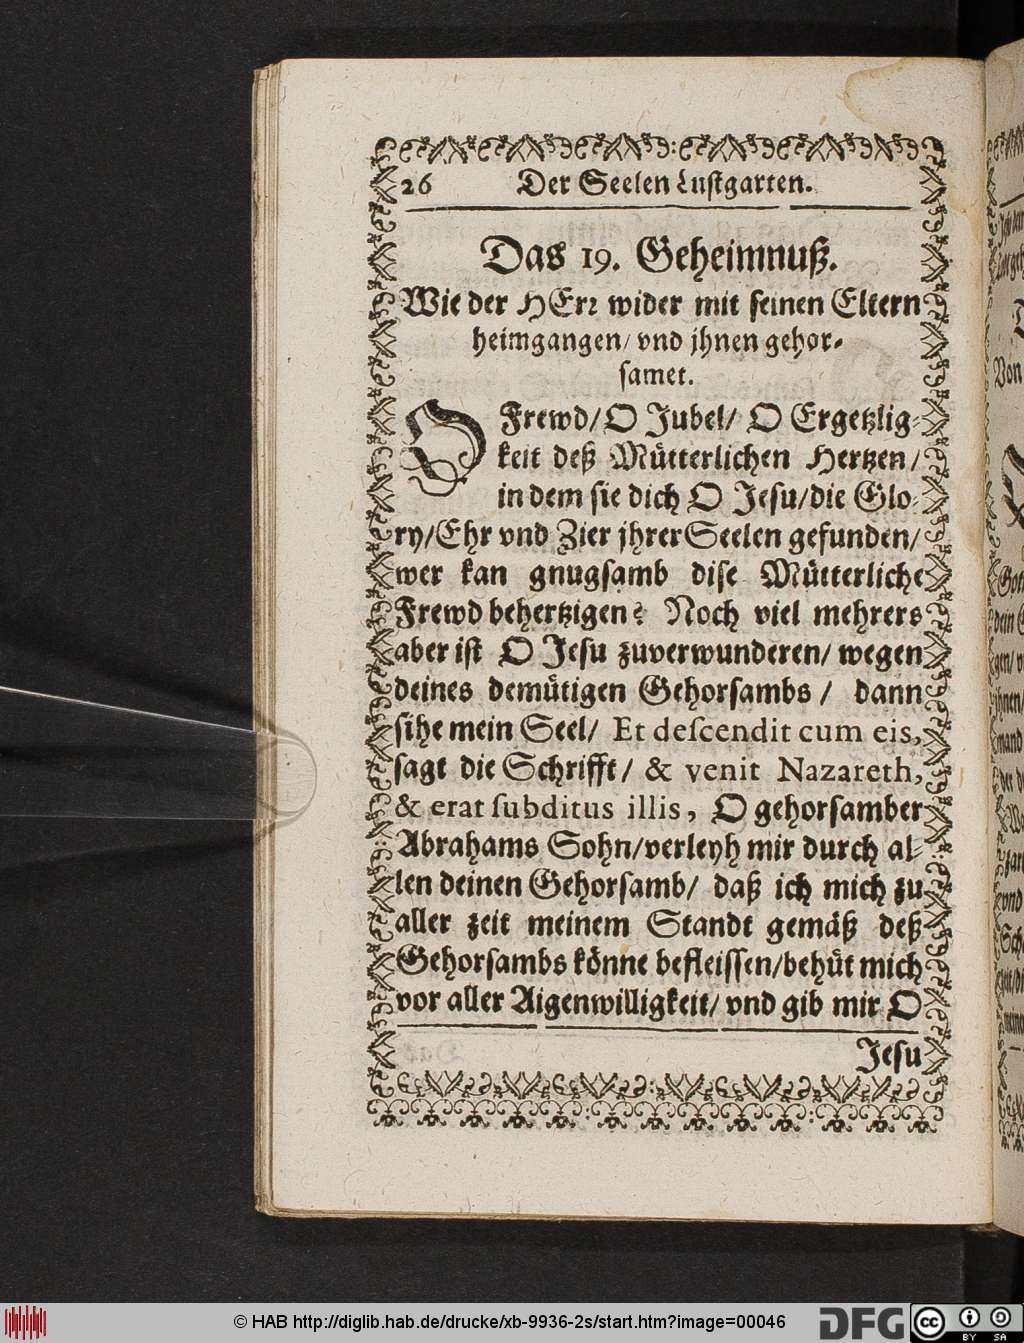 26 Der Seelen Lustgarten.
Das 19. Geheimnuß.
Wie der HErr wider mit seinen Eltern
heimgangen/ vnd jhnen gehor-
samet.
O Frewd/ O Jubel/ O Ergetzlig-
keit deß Mütterlichen Hertzen/
in dem sie dich O Jesu/ die Glo-
ry/ Ehr vnd Zier jhrer Seelen gefunden/
wer kan gnugsamb dise Mütterliche
Frewd behertzigen? Noch viel mehrers
aber ist O Jesu zuverwunderen/ wegen
deines demütigen Gehorsambs/ dann
sihe mein Seel/ Et descendit cum eis,
sagt die Schrifft/ & venit Nazareth,
& erat subditus illis, O gehorsamber
Abrahams Sohn/ verleyh mir durch al-
len deinen Gehorsamb/ daß ich mich zu
aller zeit meinem Standt gemäß deß
Gehorsambs könne befleissen/ behüt mich
vor aller Aigenwilligkeit/ vnd gib mir O
Jesu
Von
© HAB http://diglib.hab.de/drucke/xb-9936-2s/start.htm?image=00046
DFG
cc BY SA